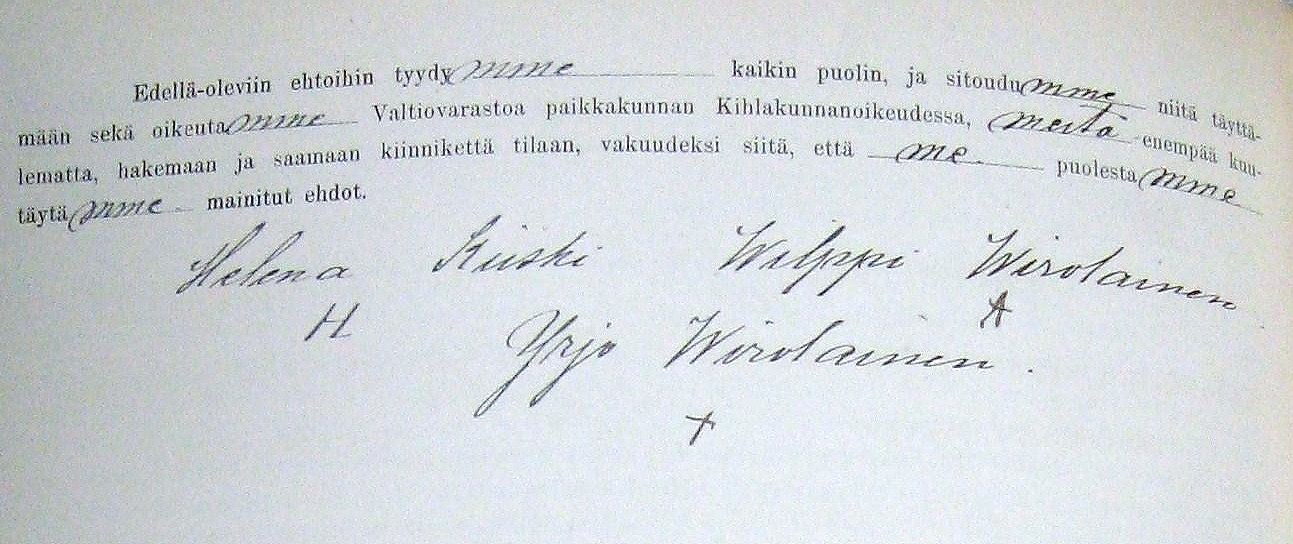 Edellä-oleviin ehtoihin tyydymme kaikin puolin, ja sitoudumme niitä täyttä-
mään sekä oikeutamme Valtiovarastoa paikkakunnan Kihlakunnanoikeudessa, meitä enempää kuu-
lematta, hakemaan ja saamaan kiinnikettä tilaan, vakuudeksi siitä, että me puolestamme
täytämme mainitut ehdot.
Helena Kiiski Wilppi Wirolainen
H A
Yrjo Wirolainen.
+